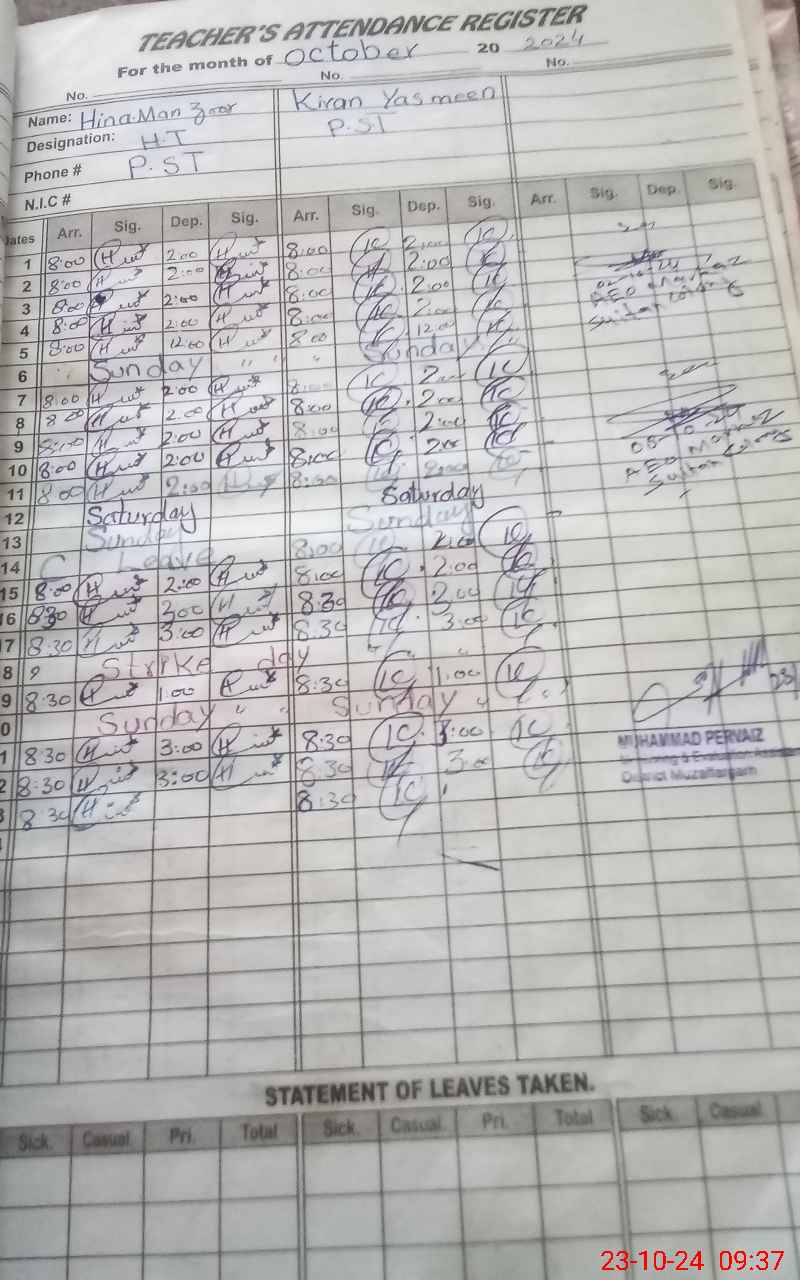 TEACHER'S ATTENDANCE REGISTER
For the month of October 20 2024
No. No. No.
Name: Hina Manzoor Kiran Yasmeen
Designation: H.T P.ST
Phone # P.ST
N.I.C #
Dates Arr. Sig. Dep. Sig. Arr. Sig. Dep. Sig. Arr. Sig. Dep. Sig.
1 8:00 2:00 8:00 2:00
2 8:00 2:00 8:00 2:00
3 8:00 2:00 8:00 2:00
4 8:00 2:00 8:00 2:00
5 8:00 12:00 8:00 12:00
6 Sunday " " " Sunday "
7 8:00 2:00 8:00 2:00
8 8:00 2:00 8:00 2:00
9 8:00 2:00 8:00 2:00
10 8:00 2:00 8:00 2:00
11 8:00 2:00 8:00 2:00
12 Saturday Saturday
13 Sunday Sunday
14 Leave 8:00
15 8:00 2:00 8:00 2:00
16 8:30 3:00 8:30
17 8:30 3:00 8:30 3:00
8 Strike day " "
9 8:30 1:00 8:30 1:00
0 Sunday " " Sunday " "
1 8:30 3:00 8:30 3:00
2 8:30 3:00 8:30 3:00
3 8:30 8:30
AEO
05-10-24
AEO
MUHAMMAD PERVAIZ
Monitoring & Evaluation Assistant
District Muzaffargarh
STATEMENT OF LEAVES TAKEN.
Sick. Casual Pri. Total Sick. Casual Pri. Total Sick. Casual
23-10-24 09:37